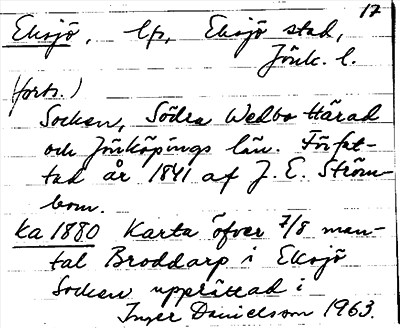 17
Eksjö, lfs, Eksjö stad,
Jönk. l.
(forts.)
Socken, Södra Wedbo Härad
och Jönköpings län. Förfat-
tad år 1841 af J. E. Ström-
bom.
ka 1880 Karta öfver 7/8 man-
tal Broddarp i Eksjö
Socken upprättad i
Inger Danielsson 1963.